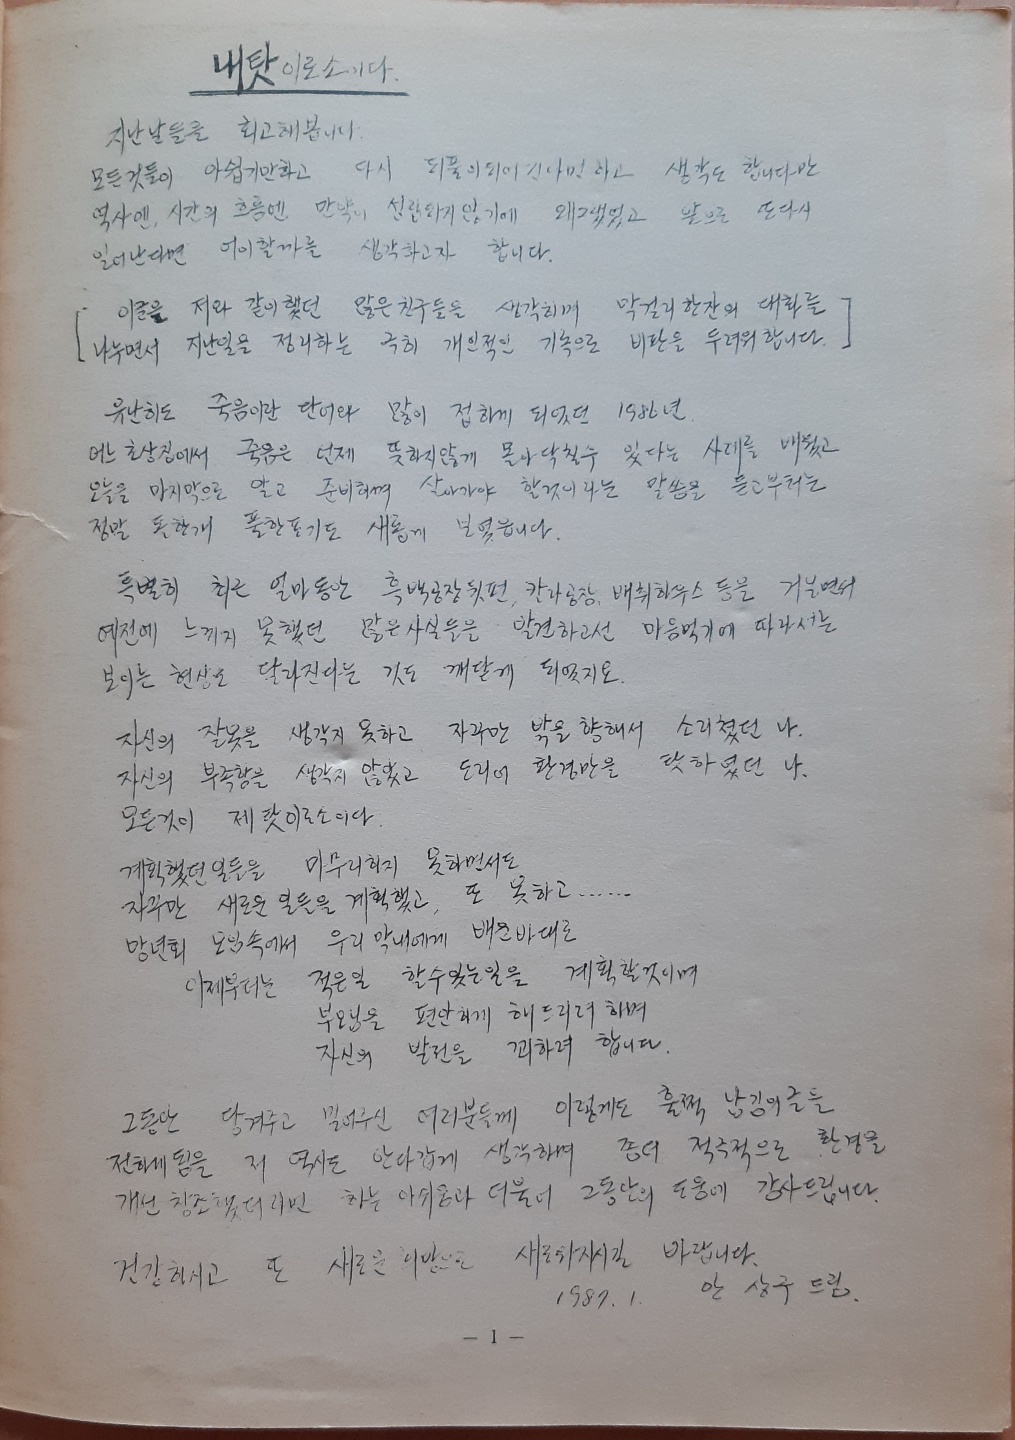 내탓이로소이다.
지난날들을 회고해봅니다.
모든것들이 아쉽기만하고 다시 되풀이되어진다면 하고 생각도 합니다만
역사엔, 시간의 흐름엔 만약이 성립되지않기에 왜그랬었고 앞으로 또다시
일어난다면 어이할까를 생각하고자 합니다.
[ 이글을 저와 같이했던 많은친구들을 생각하며 막걸리한잔의 대화를
나누면서 지난일을 정리하는 극히 개인적인 기록으로 비판을 두려워합니다. ]
유난히도 죽음이란 단어와 많이 접하게 되었던 1986년.
어느 초상집에서 죽음은 언제 뜻하지않게 몰아닥칠수 있다는 사례를 배웠고
오늘을 마지막으로 알고 준비하며 살아가야 할것이라는 말씀을 듣고부터는
정말 돌한개 풀한포기도 새롭게 보였읍니다.
특별히 최근 얼마동안 흑백공장뒷편, 칼라공장, 배취하우스 등을 거닐면서
예전에 느끼지 못했던 많은사실들을 발견하고선 마음먹기에 따라서는
보이는 현상도 달라진다는 것도 깨닫게 되었지요.
자신의 잘못을 생각지 못하고 자꾸만 밖을향해서 소리쳤던 나.
자신의 부족함을 생각지 않았고 도리어 환경만을 탓하였던 나.
모든것이 제탓이로소이다.
계획했던일들을 마무리하지 못하면서도
자꾸만 새로운 일들을 계획했고, 또 못하고......
망년회 모임속에서 우리막내에게 배운바대로
이제부터는 적은일 할수있는일을 계획할것이며
부모님을 편안하게 해드리려 하며
자신의 발전을 꾀하려 합니다.
그동안 당겨주고 밀어주신 여러분들께 이렇게도 훌쩍 남김의글을
전하게됨을 저 역시도 안타깝게 생각하며 좀더 적극적으로 환경을
개선 창조했더라면 하는 아쉬움과 더불어 그동안의 도움에 감사드립니다.
건강하시고 또 새로운 희망으로 새로와지시길 바랍니다.
1987. 1. 안 상구 드림.
— 1 —